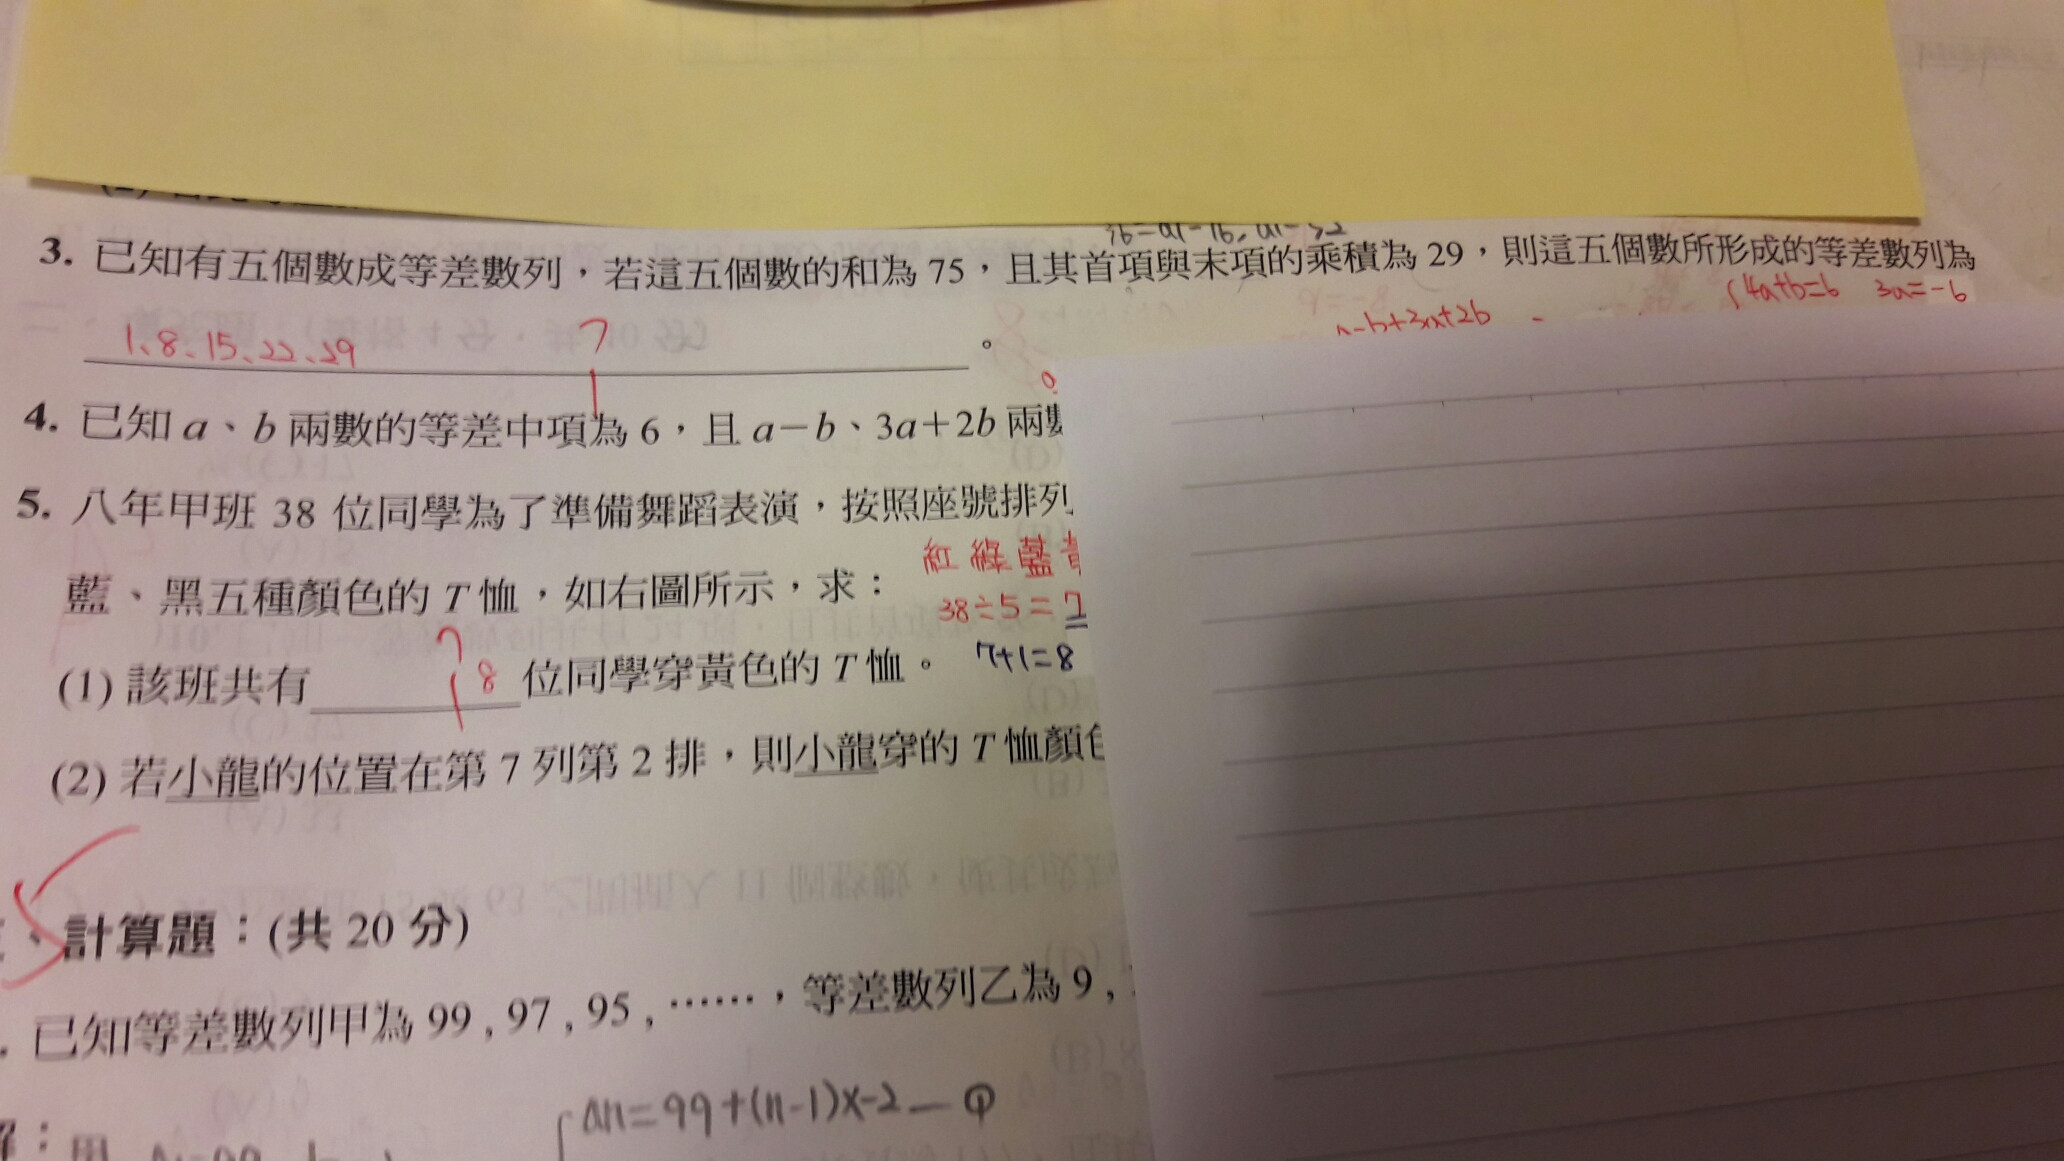 3. 已知有五個數成等差數列，若這五個數的和為 75，且其首項與末項的乘積為 29，則這五個數所形成的等差數列為
4a+b=6 3a=-6
a-b+3a+2b
1、8、15、22、29 。
4. 已知 a、b 兩數的等差中項為 6，且 a－b、3a＋2b 兩
5. 八年甲班 38 位同學為了準備舞蹈表演，按照座號排列
紅 綠 藍
藍、黑五種顏色的 T 恤，如右圖所示，求：
38÷5=7
(1) 該班共有 8 位同學穿黃色的 T 恤。 7+1=8
(2) 若小龍的位置在第 7 列第 2 排，則小龍穿的 T 恤顏色
、計算題：(共 20 分)
. 已知等差數列甲為 99 , 97 , 95 , ……，等差數列乙為 9 ,
an=99+(n-1)×-2 — ①